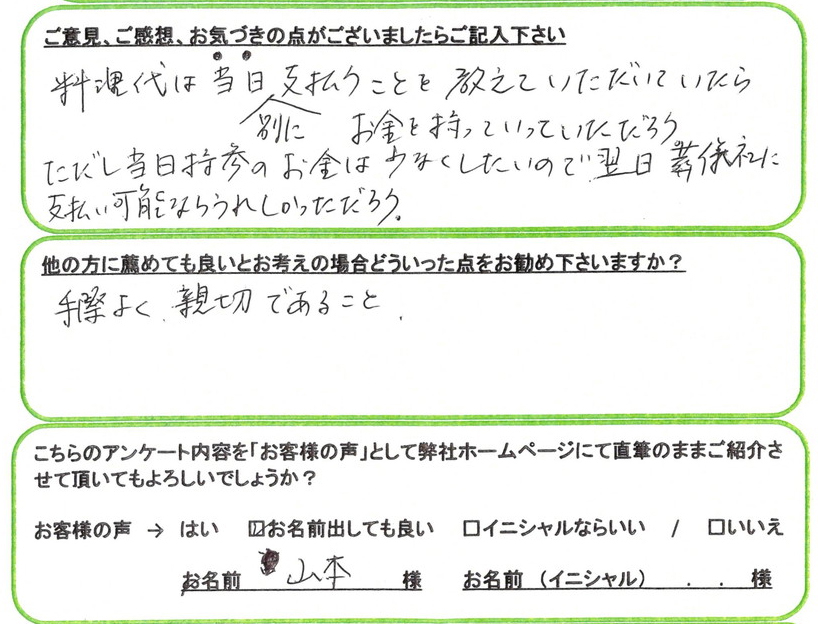 ご意見、ご感想、お気づきの点がございましたらご記入下さい
料理代は当日支払うことを教えていただいていたら
別に お金を持っていっていただろう
ただし当日持参のお金は少なくしたいので翌日葬儀社に
支払い可能ならうれしかっただろう。
他の方に薦めても良いとお考えの場合どういった点をお勧め下さいますか？
手際よく、親切であること.
こちらのアンケート内容を「お客様の声」として弊社ホームページにて直筆のままご紹介さ
せて頂いてもよろしいでしょうか？
お客様の声 → はい ☑お名前出しても良い □イニシャルならいい / □いいえ
お名前 山本 様 お名前 （イニシャル） . . 様